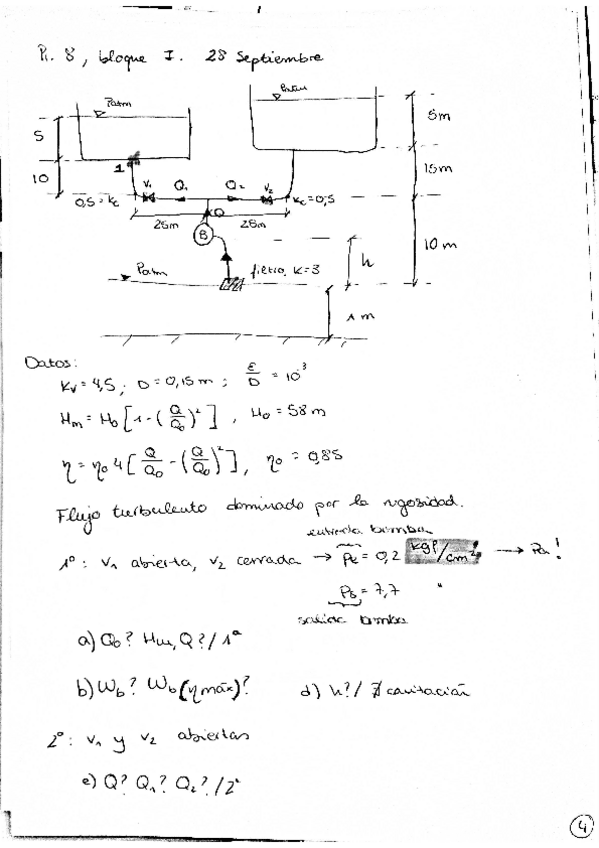 Pr. 8, bloque I. 28 Septiembre
Patm
Patm
5
10
5m
15m
10 m
1
V₁
Q₁
Q₂
V₂
0,5 = kc
kc = 0,5
25m
25m
Q
B
h
Patm
filtro, K=3
1 m
Datos:
Kv = 4,5 ; D = 0,15 m ; ε/D = 10⁻³
Hm = H₀ [1 - (Q/Q₀)²] , H₀ = 58 m
η = η₀ 4 [Q/Q₀ - (Q/Q₀)²] , η₀ = 0,85
Flujo turbulento dominado por la rugosidad.
entrada bomba
1º: V₁ abierta, V₂ cerrada → Pe = 0,2 kgf/cm² → Pa!
Ps = 7,7 "
salida bomba
a) Q₀? Hm, Q? / 1º
b) Wb? Wb (η máx)? d) h? / ∄ cavitación
2º: V₁ y V₂ abiertas
e) Q? Q₁? Q₂? / 2º
4